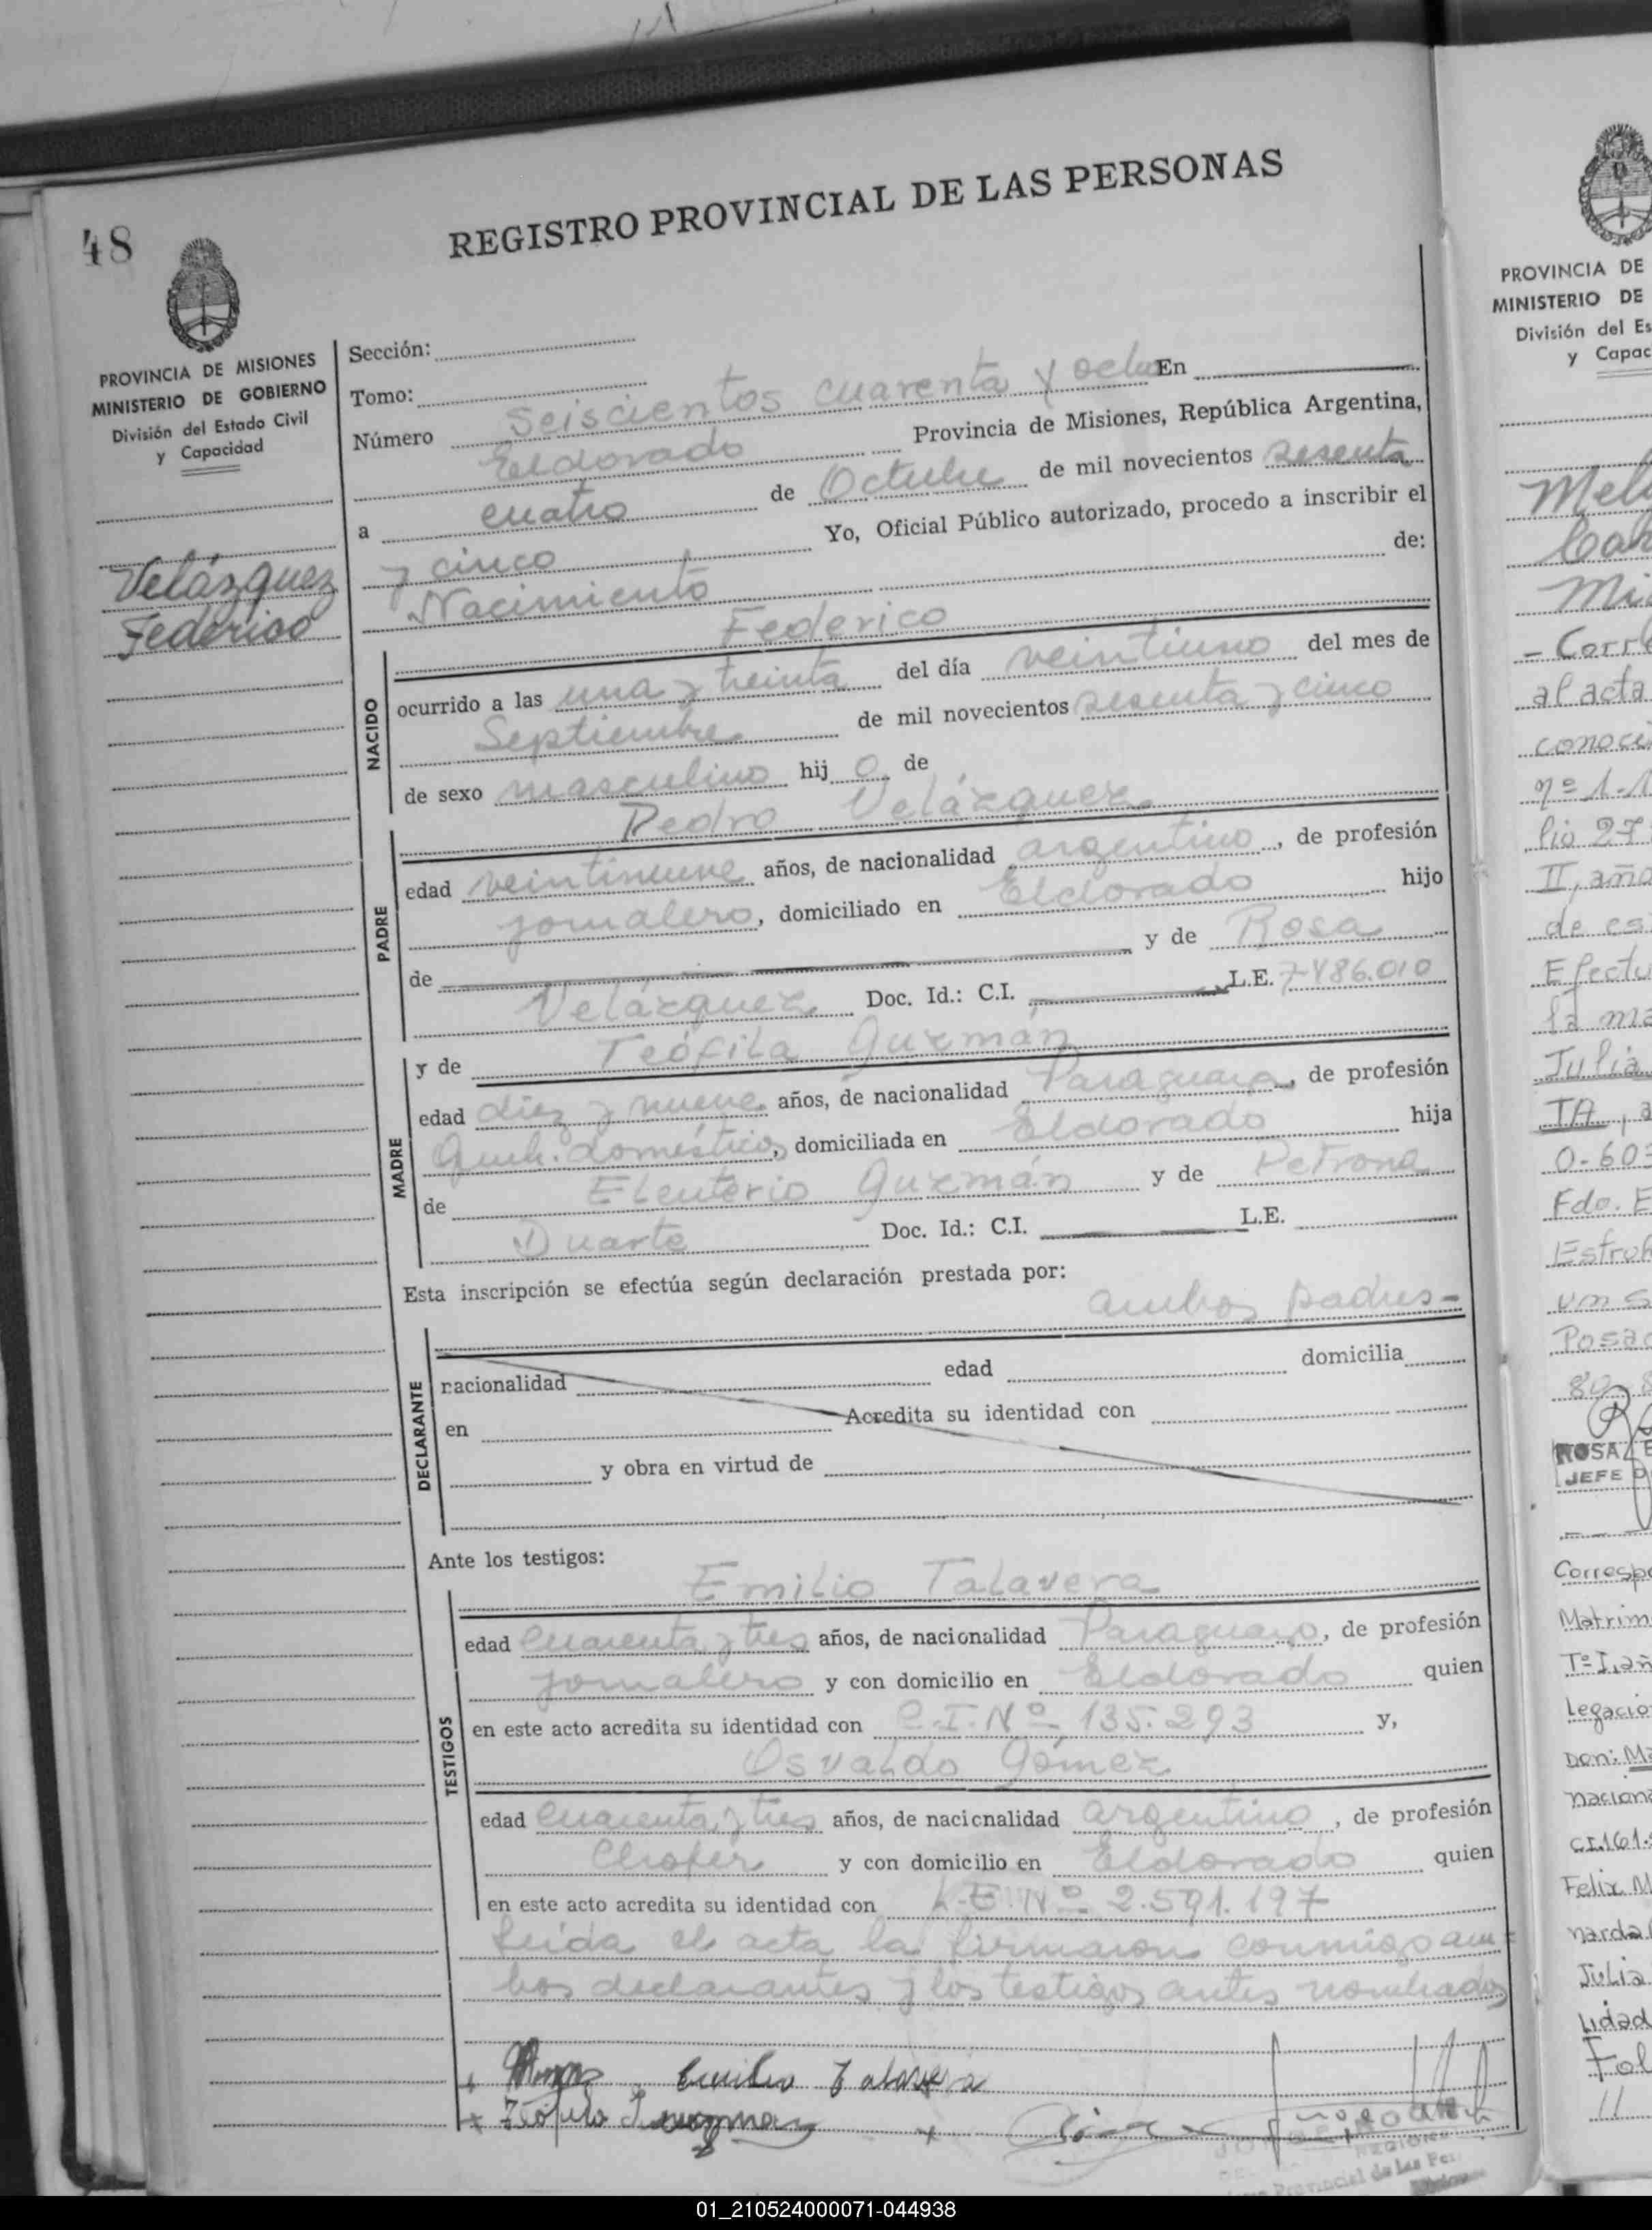 48
REGISTRO PROVINCIAL DE LAS PERSONAS
PROVINCIA DE MISIONES
MINISTERIO DE GOBIERNO
División del Estado Civil
y Capacidad
Velázquez
Federico
Sección:
Tomo:
Número Seiscientos cuarenta y ocho En
Eldorado Provincia de Misiones, República Argentina,
a cuatro de Octubre de mil novecientos sesenta
y cinco Yo, Oficial Público autorizado, procedo a inscribir el
Nacimiento de:
NACIDO
Federico
ocurrido a las una y treinta del día veintiuno del mes de
Septiembre de mil novecientos sesenta y cinco
de sexo masculino hij o de
PADRE
Pedro Velázquez
edad veintinueve años, de nacionalidad argentino, de profesión
jornalero, domiciliado en Eldorado hijo
de y de Rosa
Velázquez Doc. Id.: C.I. L.E. 7486.010
MADRE
y de Teófila Guzmán
edad diez y nueve años, de nacionalidad Paraguaya, de profesión
Queh. domésticos, domiciliada en Eldorado hija
de Eleuterio Guzmán y de Petrona
Duarte Doc. Id.: C.I. L.E.
Esta inscripción se efectúa según declaración prestada por:
ambos padres-
DECLARANTE
nacionalidad edad domicilia
en Acredita su identidad con
y obra en virtud de
Ante los testigos:
TESTIGOS
Emilio Talavera
edad Cuarenta y tres años, de nacionalidad Paraguayo, de profesión
jornalero y con domicilio en Eldorado quien
en este acto acredita su identidad con C.I.Nº 135.293 y,
Osvaldo Gómez
edad Cuarenta y tres años, de nacicnalidad argentino, de profesión
Chofer y con domicilio en Eldorado quien
en este acto acredita su identidad con L.E.Nº 2.591.197
Leída el acta la firmaron conmigo am=
bos declarantes y los testigos antes nombrados
Emilio Talavera
Provincial de las Per
PROVINCIA DE
MINISTERIO DE
División del Es
y Capac
Mi
- Corre
al acta
conoci
nº 1-1
lio 27
II, año
de es
Efectu
la ma
Julia
TA, a
0-603
Fdo. E
Posad
ROSA E
JEFE D
Correspo
Matrim
Tº I, añ
Legacio
Don: Ma
naciona
CI.161.
Felix M
narda
Julia
Lidad
Fol
11
01_210524000071-044938